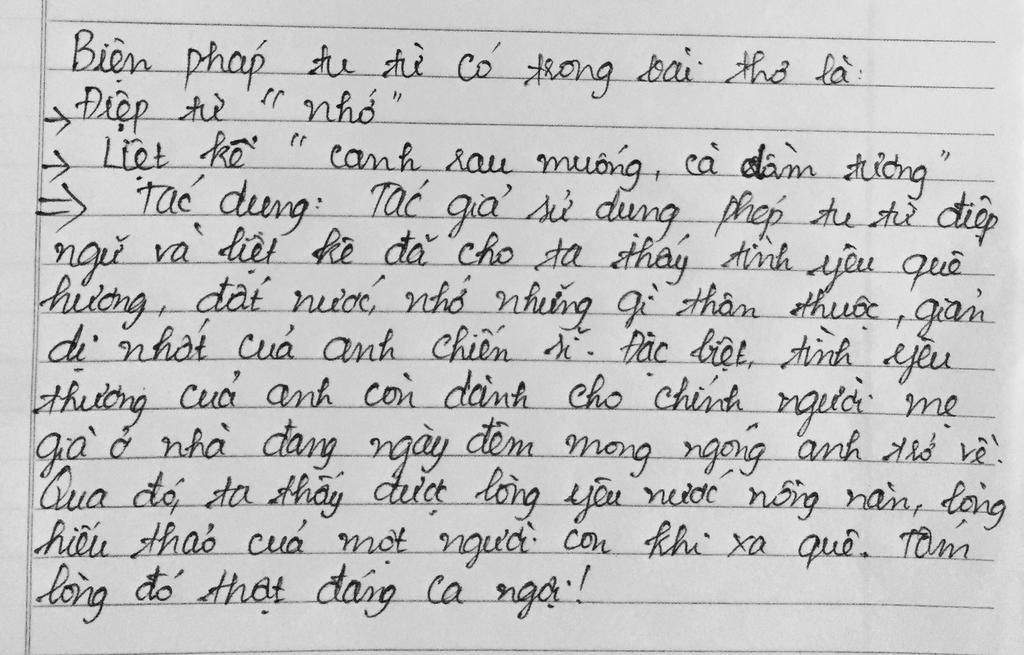 Biện pháp tu từ có trong bài thơ là:
→ Điệp từ "nhớ"
→ Liệt kê "canh rau muống, cà dầm tương"
=> Tác dụng: Tác giả sử dụng phép tu từ điệp
ngữ và liệt kê đã cho ta thấy tình yêu quê
hương, đất nước, nhớ những gì thân thuộc, giản
dị nhất của anh chiến sĩ. Đặc biệt, tình yêu
thương của anh còn dành cho chính người mẹ
già ở nhà đang ngày đêm mong ngóng anh trở về.
Qua đó, ta thấy được lòng yêu nước nồng nàn, lòng
hiếu thảo của một người con khi xa quê. Tấm
lòng đó thật đáng ca ngợi!